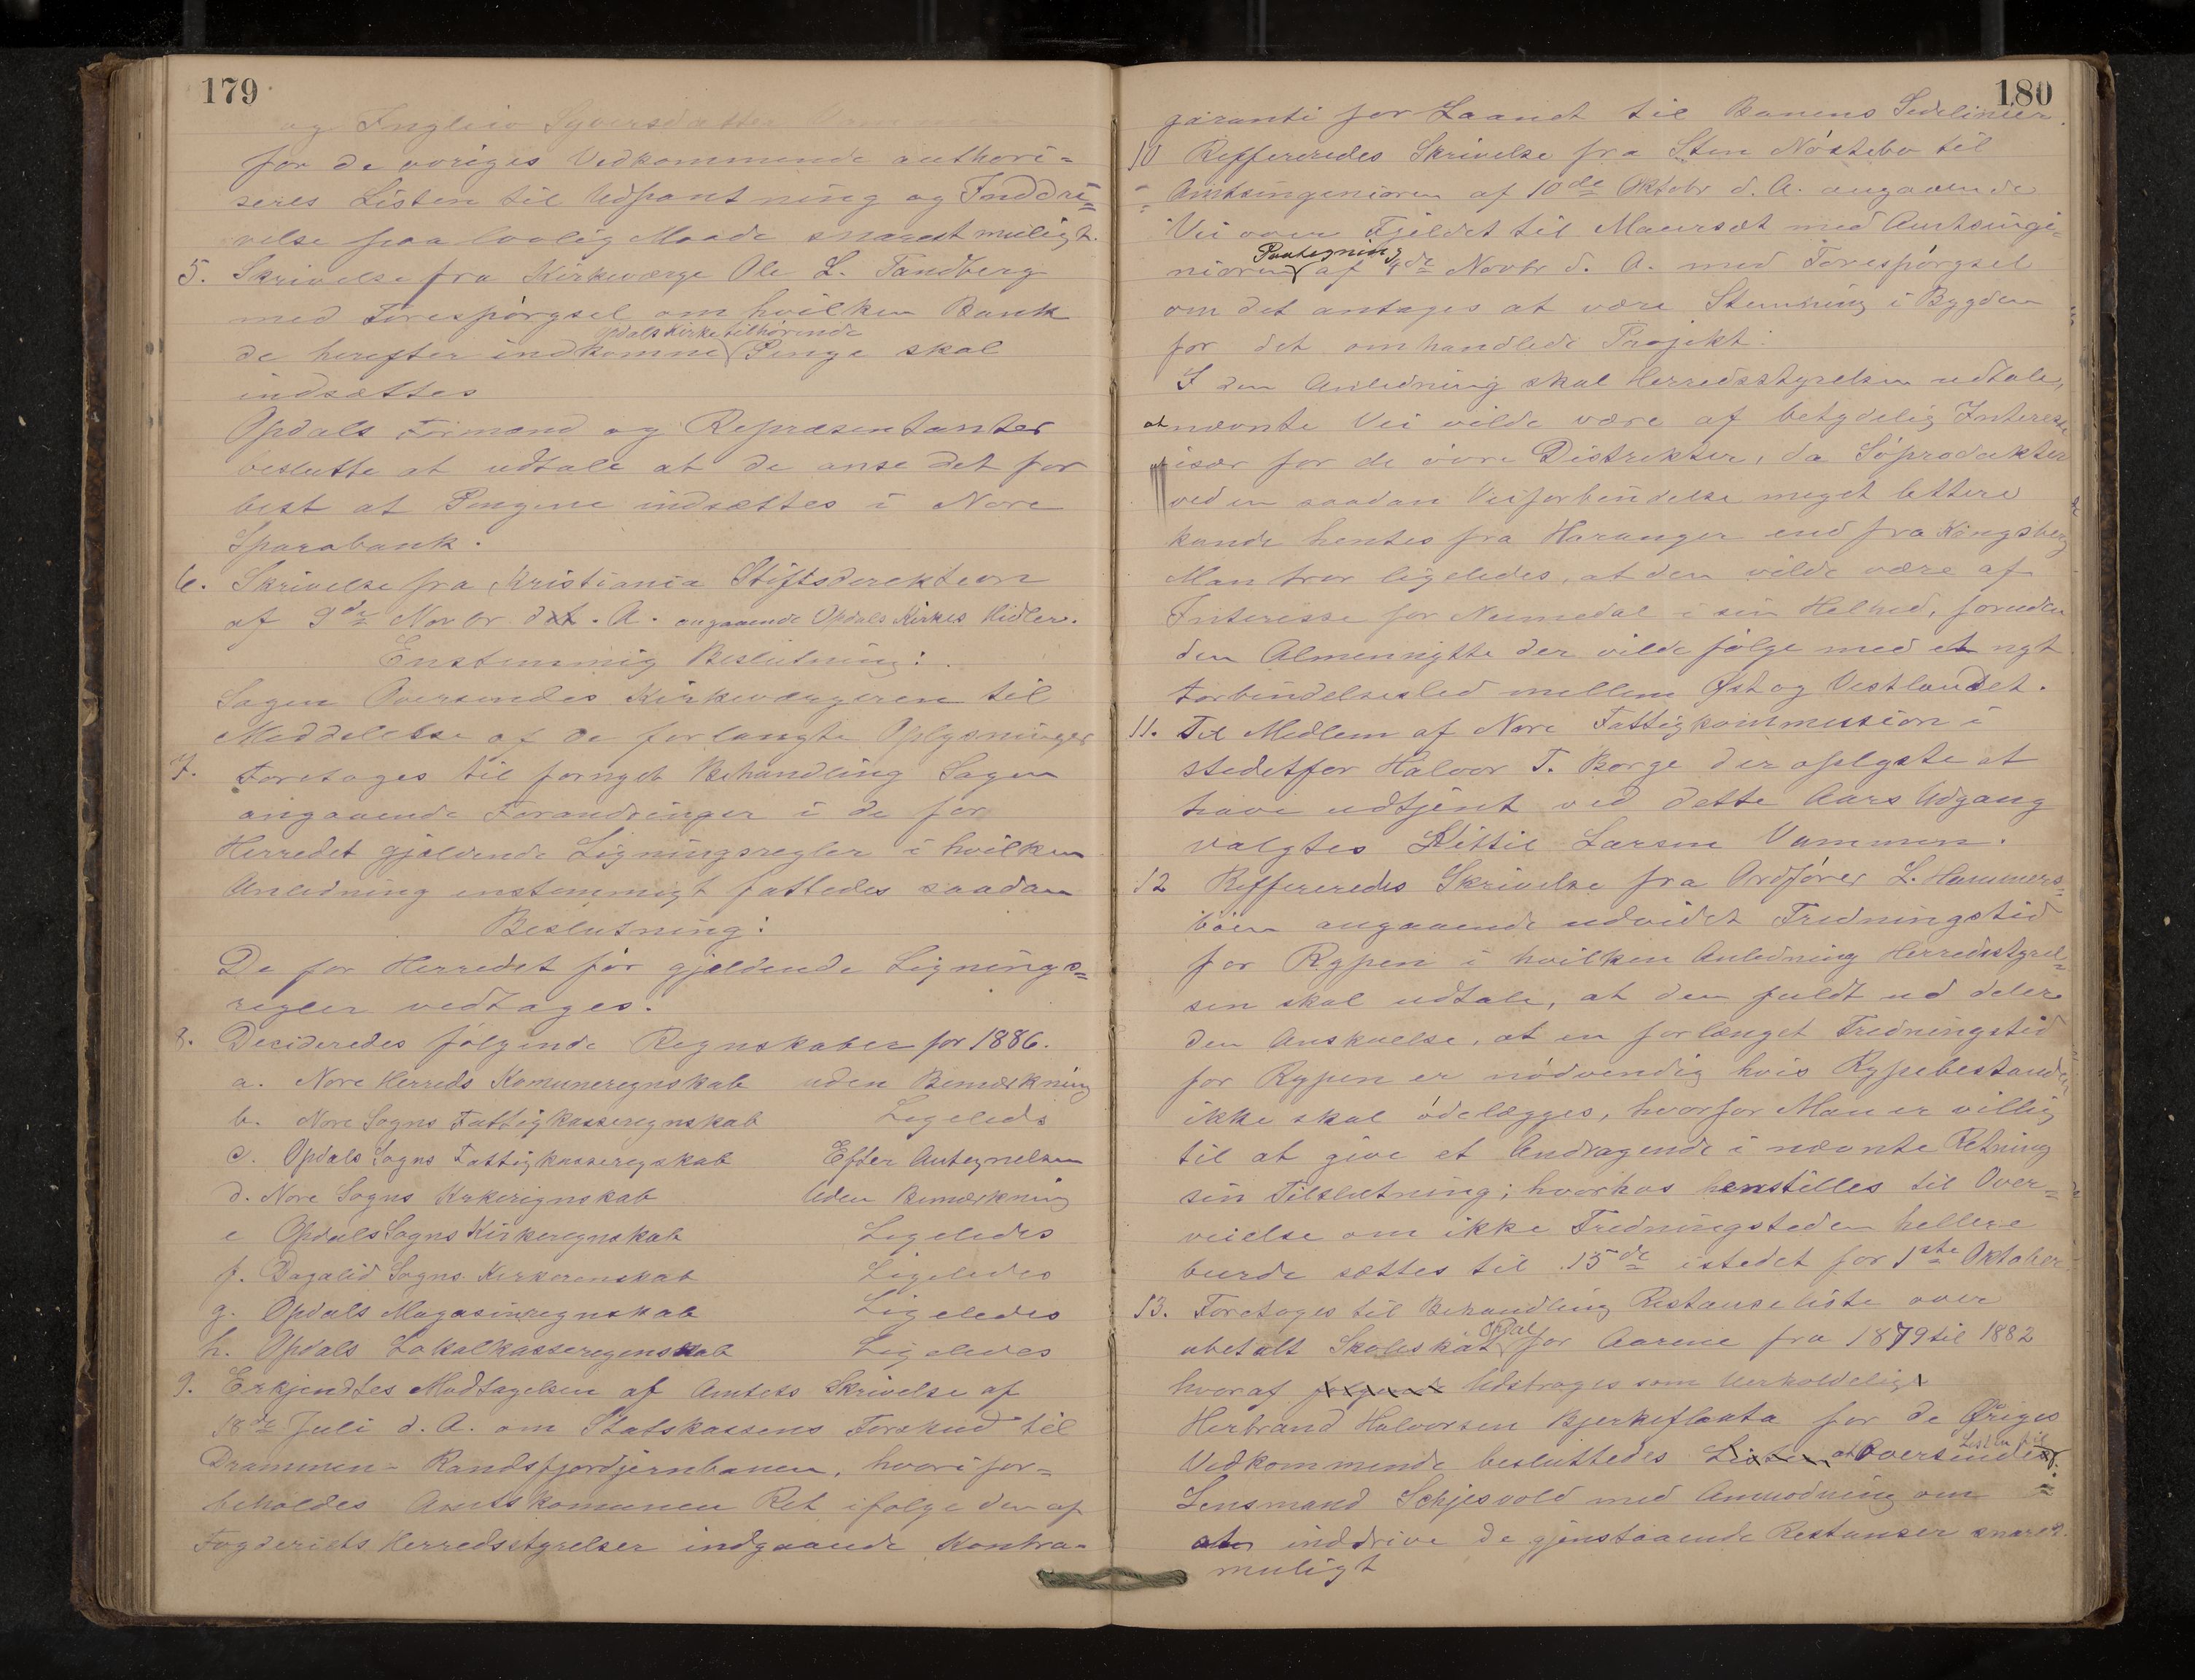 179
og Inglerio Syversdatter
for de øvriges Vedkommende authori=
seres Listen til Udpantning og Inddri=
velse paa lovlig Maade snarest muligt.
5. Skrivelse fra Kirkeværge Ole L. Tandberg
med Forespórgsel om hvilken Bank
Opdals Kirke tilhórende
de herefter indkomne Penge skal
indsættes
Opdals Formænd og Repræsentanter
beslutte at udtale at de anse det for
best at Pengene indsættes i Nore
Sparebank.
6. Skrivelse fra Kristiania Stiftsdirektion
af 9de Novbr d. A. angaaende Opdals Kirkes Midler.
Enstemmig Beslutning:
Sagen Oversendes Kirkeværgeren til
Meddelelse af de forlangte Oplysninger
7. Foretoges til fornyet Behandling Sagen
angaaende Forandringer i de for
Herredet gjældende Ligningsregler i hvilken
Anledning enstemmigt fattedes saadan
Beslutning:
De for Herredet fór gjældende Lignings=
regler vedtages.
8. Decideredes fólgende Regnskaber for 1886.
a. Nore Herreds Komuneregnskab uden Bemærkning
b. Nore Sogns Fattigkasseregnskab Ligeleds
c. Opdals Sogns Fattigkasseregskab Efter Antegnelsen
d. Nore Sogns Kirkeregnskab Uden Bemærkning
e Opdals Sogns Kirkeregnskab Ligeledes
f. Dagalid Sogns Kirkerenskab Ligeledes
g. Opdals Magasinregnskab Ligeledes
h. Opdals Lokalkasseregenskab Ligeledes
9. Erkjendtes Modtagelsen af Amtets Skrivelse af
18de Juli d. A. om Statskassens Forskud til
Drammen-Randsfjordjernbanen, hvori for=
beholdes Amtskomunen Ret ifølge den af
Fogderiets Herredsstyrelser indgaaende Kontra-
180
garanti for Laanet til Banens Sidelinier.
10 Reffereredes Skrivelse fra Sten Nóstebo til
Amtsingeniøren af 10de Oktobr d. A. angaaende
Vei over Fjeldet til Maursæt med Amtsingi-
Paategning
niøren af de Novbr d. A. med Forespórgsel
om det antages at være Stemning i Bygden
for det omhandlede Projekt.
I den Anledning skal Herredsstyrelsen udtale,
at nævnte Vei vilde være af betydelig Interesse
især for de óvre Distrikter, da Sóprodukter
ved en saadan Veiforbindelse meget lettere
kunde hentes fra Haranger end fra Kongsberg
Man tror ligeledes, at den vilde være af
Interesse for Numedal i sin Helhed, foruden
den Almennytte der vilde fólge med et nyt
Forbindelsesled mellem Øst og Vestlandet.
11. Til Medlem af Nore Fattigkommission i
stedetfor Halvor T. Borge der oplyste at
have udtjent ved dette Aars Udgang
valgtes Kittil Larsen Vammen.
12 Reffereredes Skrivelse fra Ordfórer L. Hammers=
bóen angaaende udvidet Fredningstid
for Rypen i hvilken Anledning Herredsstyrel=
sen skal udtale, at den fuldt ud deler
den Anskuelse, at en forlænget Fredningstid
for Rypen er nódvendig hvis Rypebestanden
ikke skal ódelægges, hvorfor Man er villig
til at give et Andragende i nævnte Retning
sin Tilslutning; hvorhos henstilles til Over=
veielse om ikke Fredningstiden hellere
burde sættes til 15de istedet for 1ste Oktober
13. Foretoges til Behandling Restanseliste over
Opdal
ubetalt Skoleskat for Aarene fra 1879 til 1882
hvoraf følgende Udstroges som Uerholdelig
Herbrand Halvorsen Bjerkeflaata for de Øriges
Listen til
Vedkommende besluttedes Listen at Oversendes
Lensmand Schjesvold med Anmodning om
at inddrive de gjenstaaende Restanser snarest
muligt